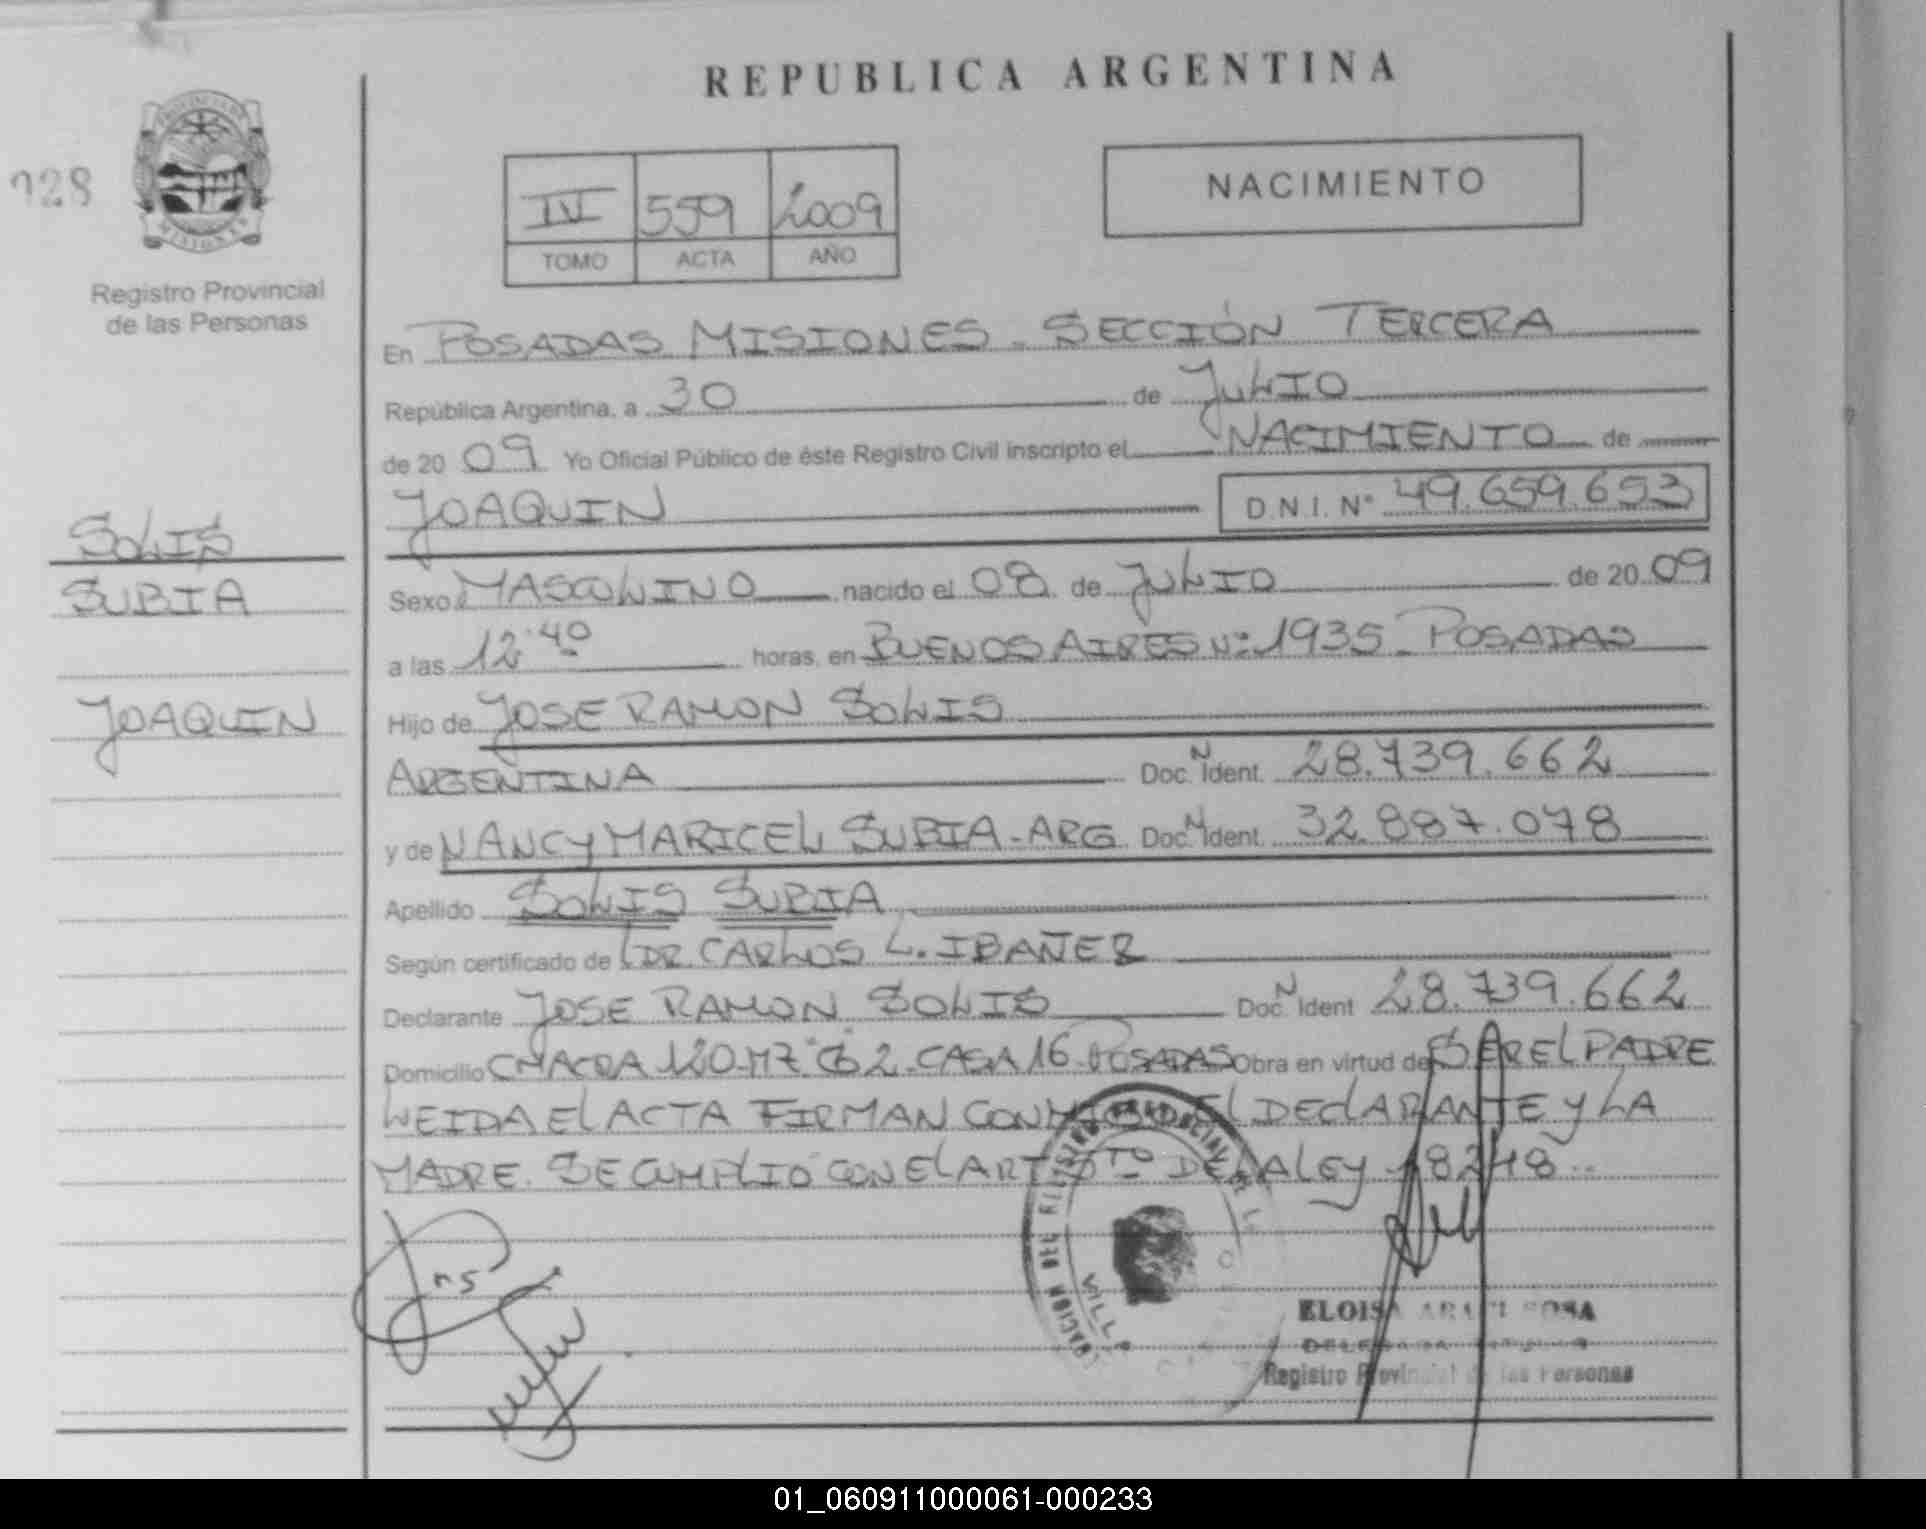 REPUBLICA ARGENTINA
928
PROVINCIA DE
MISIONES
Registro Provincial
de las Personas
IV 559 2009
TOMO ACTA AÑO
NACIMIENTO
En POSADAS MISIONES - SECCIÓN TERCERA
República Argentina, a 30 de JULIO
de 20 09 Yo Oficial Público de éste Registro Civil inscripto el NACIMIENTO de
JOAQUIN D.N.I. N° 49.659.653
SOLIS
SUBIA
JOAQUIN
Sexo MASCULINO nacido el 08 de JULIO de 20 09
a las 12:40 horas, en BUENOS AIRES N°: 1935 - POSADAS
Hijo de JOSE RAMON SOLIS
ARGENTINA Doc. N Ident. 28.739.662
y de NANCY MARICEL SUBIA - ARG Doc. N Ident. 32.887.078
Apellido SOLIS SUBIA
Según certificado de DR. CARLOS L. IBAÑEZ
Declarante JOSE RAMON SOLIS Doc. N Ident 28.739.662
Domicilio CHACRA 120-M7 C 2 - CASA 16 POSADAS Obra en virtud de SER EL PADRE
LEIDA El ACTA FIRMAN CONMIGO El DEClARANTE y LA
MADRE. SE CUMPLIO CON El ART TO DE LA LEy 18248
ELOISA SOSA
Registro Provincial de las Personas
01_060911000061-000233